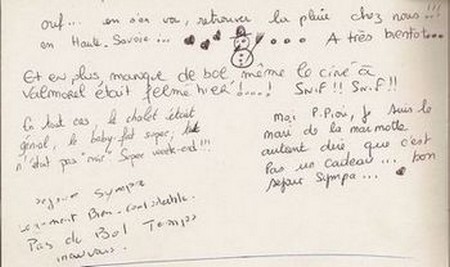 ouf... on s'en va, retrouver la pluie chez nous!!!
en Haute-Savoie... A très bientôt...
Et en plus, manque de bol, même le ciné à
Valmorel était fermé hier!...! Snif!! Snif!!
En tout cas, le chalet était
génial, le baby-foot super,
n'était pas "mir" Super week-end!!!
Moi P.Piou, je suis le
mari de la marmotte
autant dire, que c'est
Pas un cadeau... bon
sejour Sympa...
sejour Sympa
vraiment Bien. confortable.
Pas de Bol Temps
mauvais.